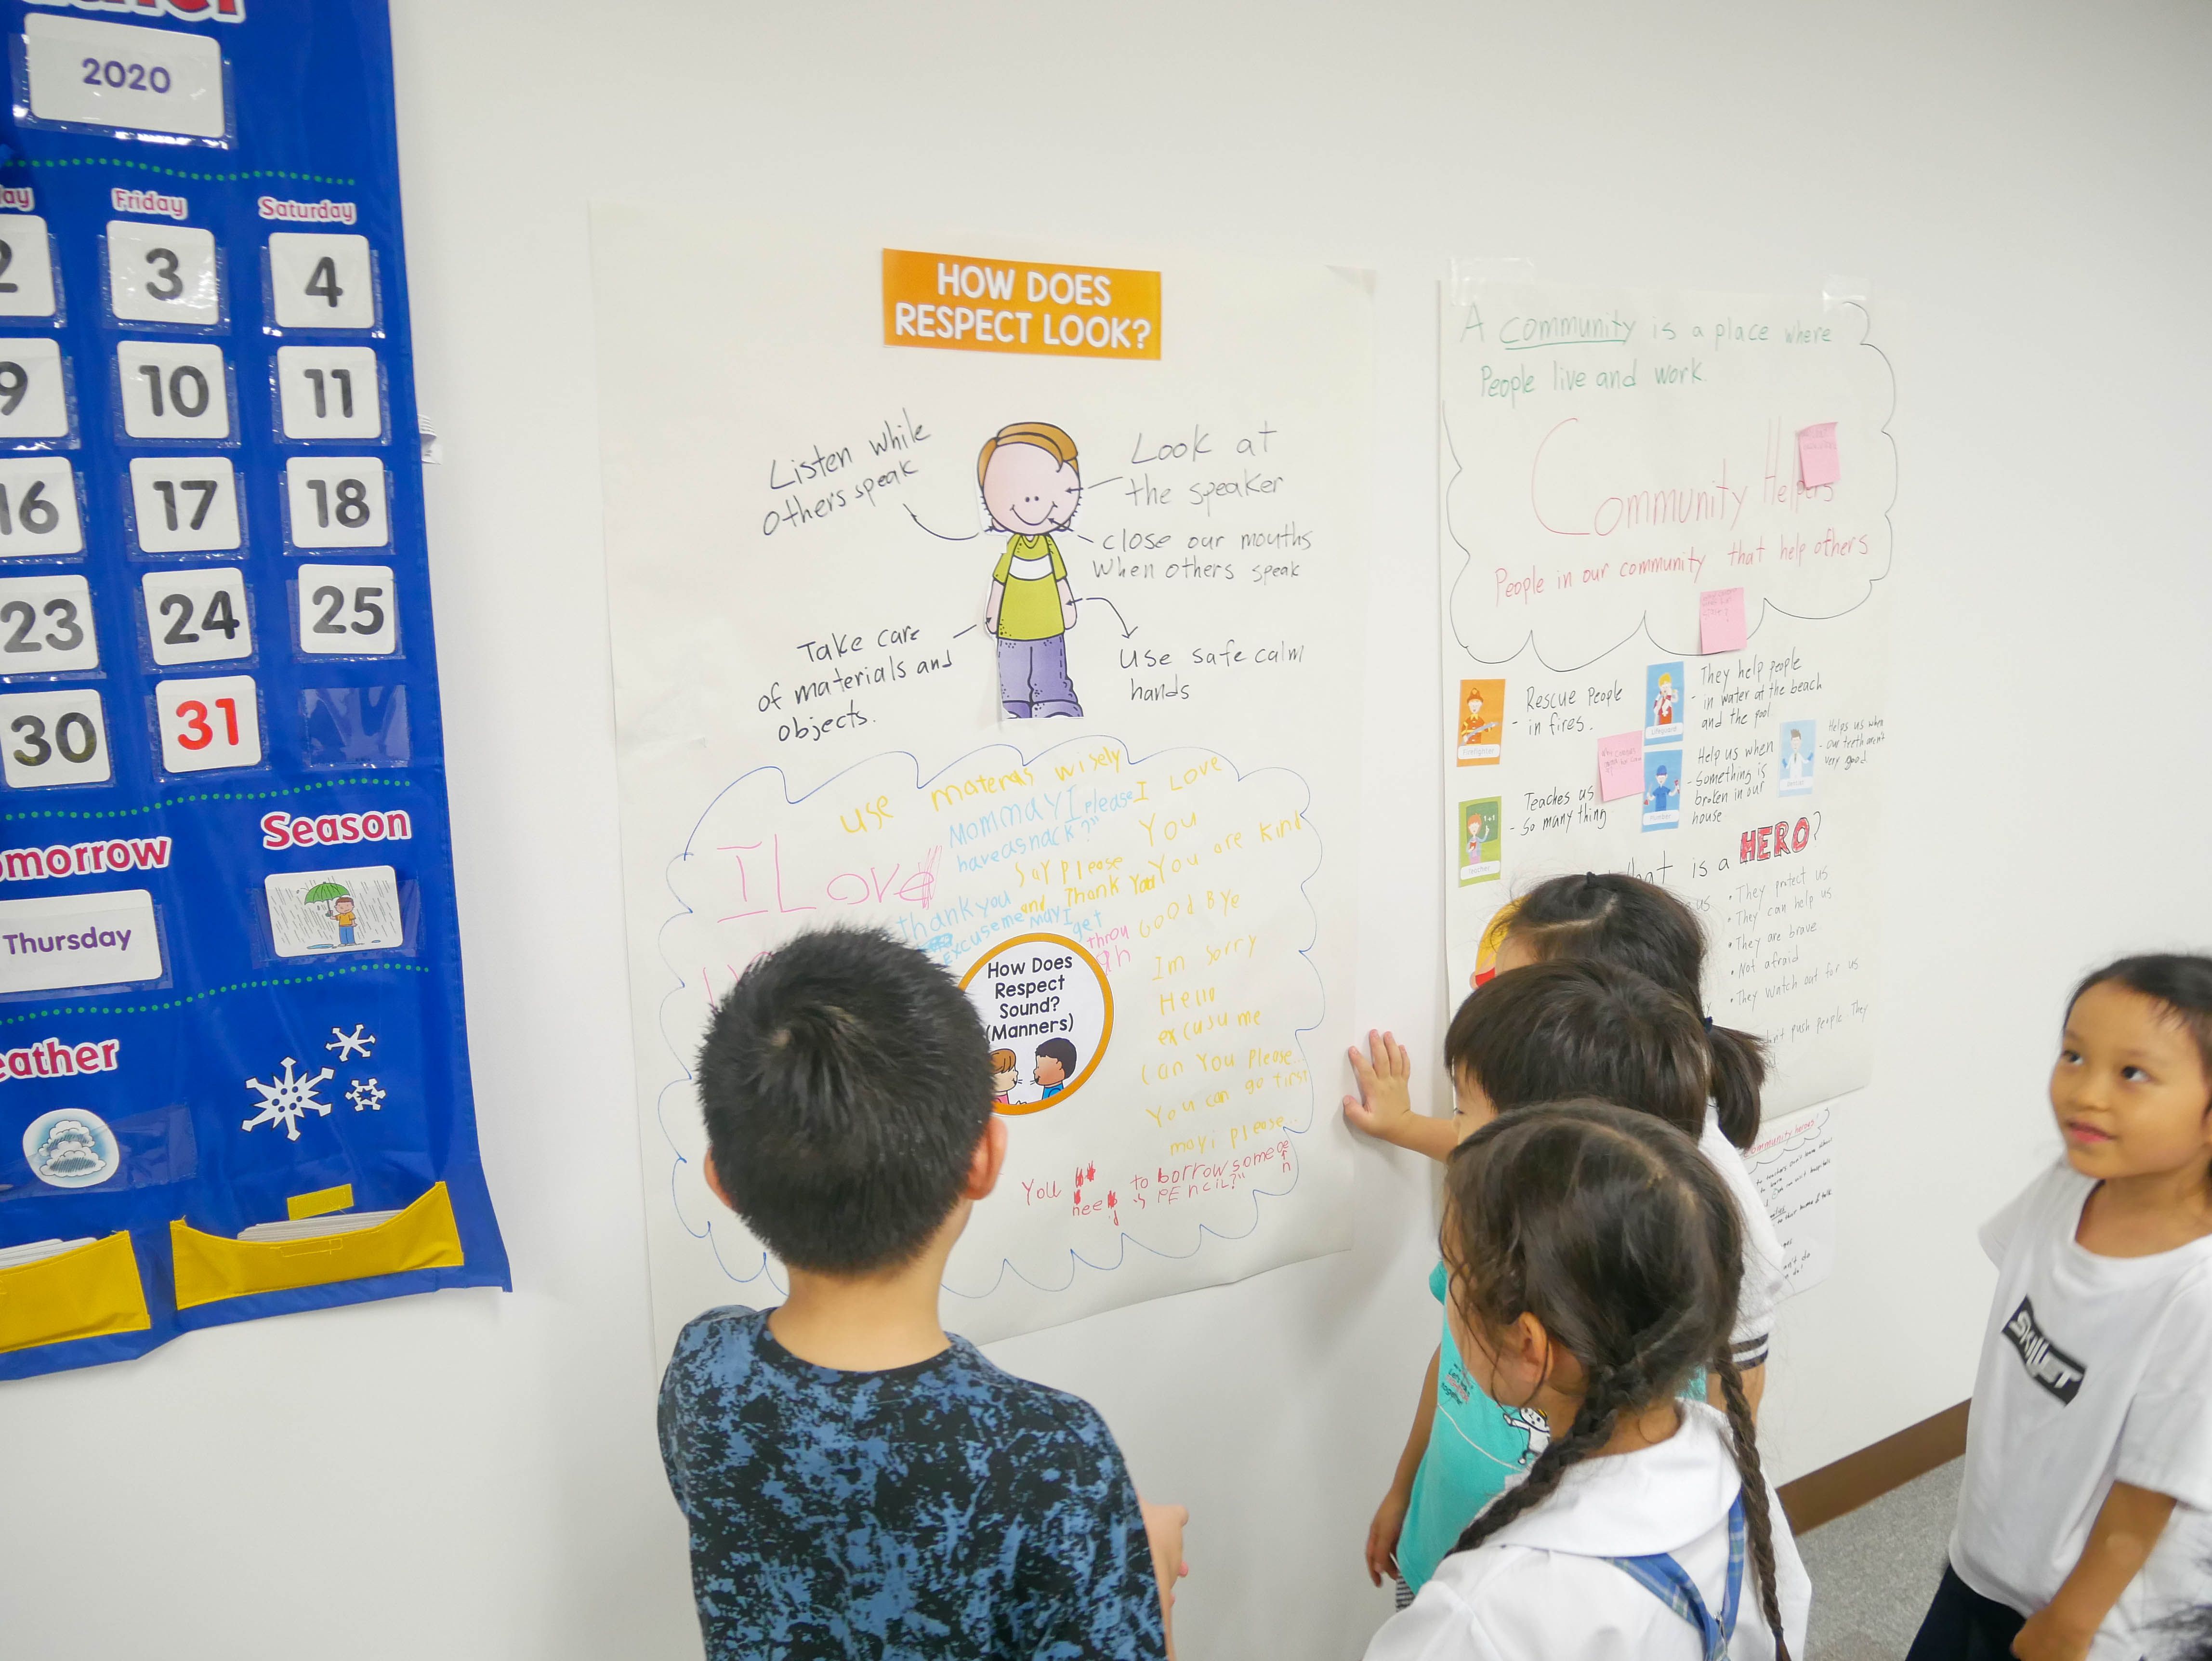 2020
Friday
Saturday
2
3
4
9
10
11
16
17
18
23
24
25
30
31
Season
Thursday
HOW DOES
RESPECT LOOK?
Listen while
others speak
Look at
the speaker
close our mouths
when others speak
Take care
of materials and
objects.
use safe calm
hands
use materas wisely
Mommay I please
have a snack?"
I Love
You
I Love
Say please
and Thank You
You are kind
thank you
excuse me may I
get
throu
gh
Good Bye
Im sorry
Hello
excusu me
Can You Please...
You can go first
may i please...
You need to borrow some
PEnciL?"
How Does
Respect
Sound?
(Manners)
A community is a place where
People live and work.
Community Helpers
People in our community that help others
Firefighter
- Rescue People
in fires.
Lifeguard
- They help people
in water at the beach
and the pool
Teacher
- Teaches us
so many thing
- Help us when
something is
broken in our
house
- Helps us when
our teeth aren't
very good
is a HERO?
• They protect us
• They can help us
• They are brave
• Not afraid
• They watch out for us
push people They
community helpers
SKYJET